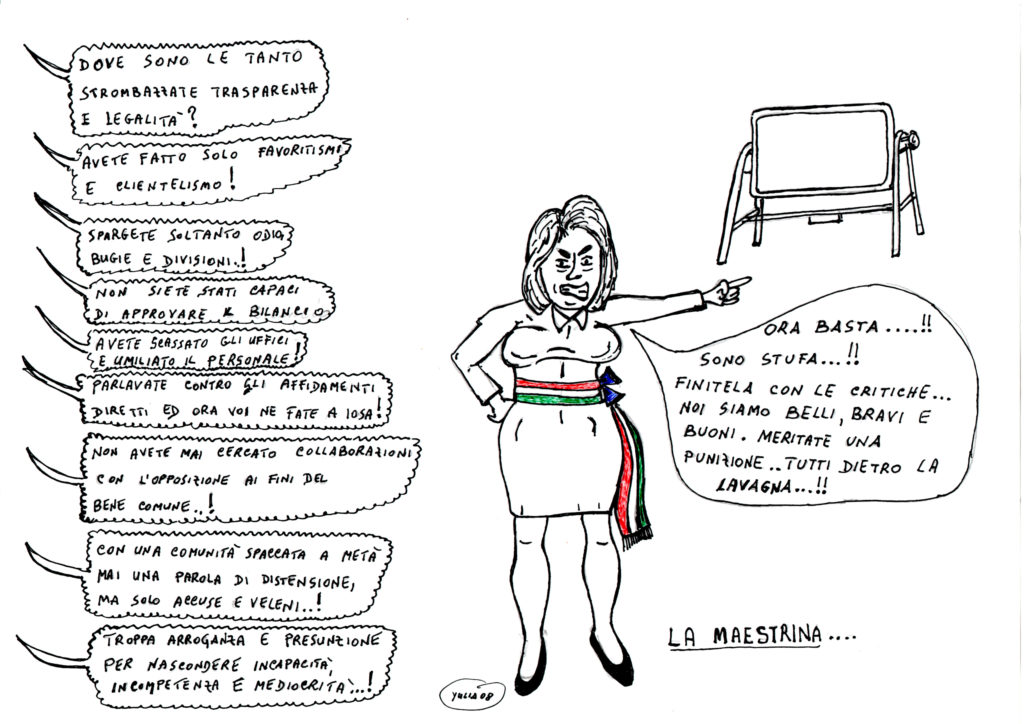 DOVE SONO LE TANTO
STROMBAZZATE TRASPARENZA
E LEGALITÀ?
AVETE FATTO SOLO FAVORITISMI
E CLIENTELISMO!
SPARGETE SOLTANTO ODIO
BUGIE E DIVISIONI..!
NON SIETE STATI CAPACI
DI APPROVARE IL BILANCIO
AVETE SCASSATO GLI UFFICI
E UMILIATO IL PERSONALE!
PARLAVATE CONTRO GLI AFFIDAMENTI
DIRETTI ED ORA VOI NE FATE A IOSA!
NON AVETE MAI CERCATO COLLABORAZIONI
CON L'OPPOSIZIONE AI FINI DEL
BENE COMUNE..!
CON UNA COMUNITÀ SPACCATA A METÀ
MAI UNA PAROLA DI DISTENSIONE,
MA SOLO ACCUSE E VELENI..!
TROPPA ARROGANZA E PRESUNZIONE
PER NASCONDERE INCAPACITÀ,
INCOMPETENZA E MEDIOCRITÀ...!
ORA BASTA.....!!
SONO STUFA...!!
FINITELA CON LE CRITICHE...
NOI SIAMO BELLI, BRAVI E
BUONI. MERITATE UNA
PUNIZIONE..TUTTI DIETRO LA
LAVAGNA...!!
LA MAESTRINA....